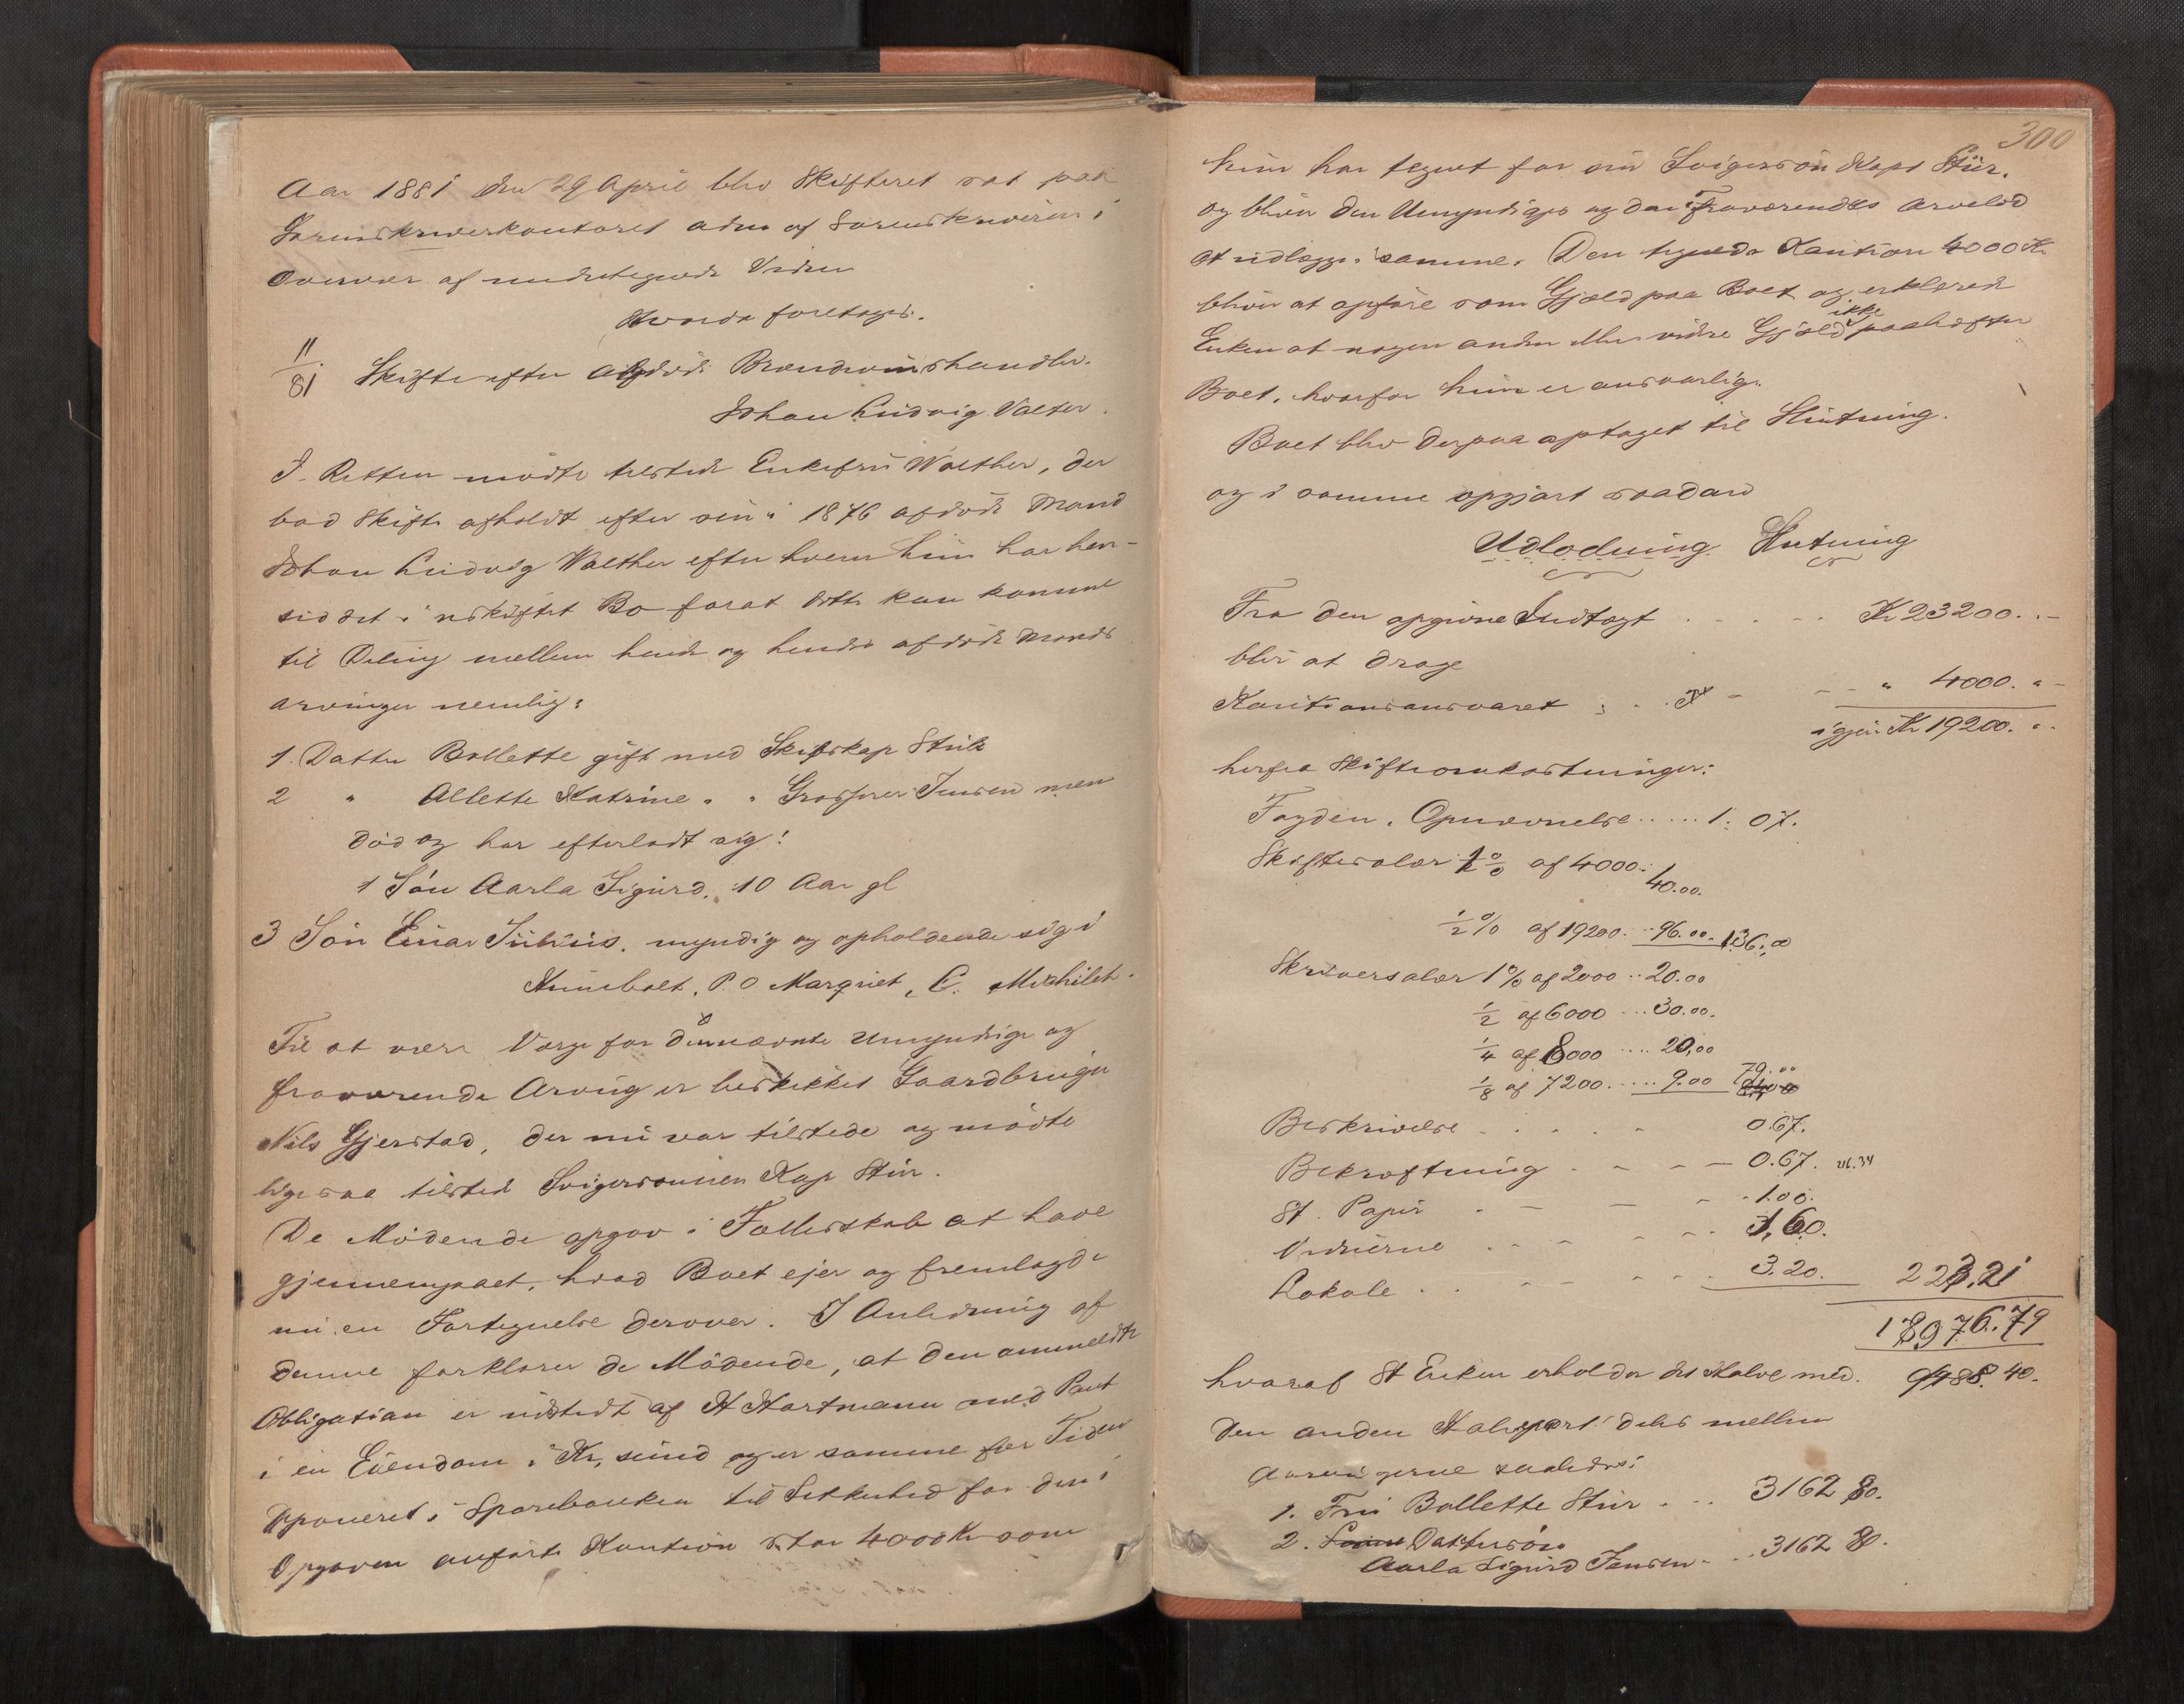 Aar 1881 den 29 April blev Skifteret sat paa
Sorenskriverkontoret adm af Sorenskriveren i
Overvær af undertegnede Vidner
Hvorda foretages.
11/81 Skifte efter afdøde Brændevinshandler
Johan Ludvig Valter.
I Retten mødte tilstede Enkefru Walther, der
bad Skifte afholdt efter sin i 1876 afdøde Mand
Johan Ludvig Walther efter hvem hun har hen-
siddet i uskiftet Bo forat dette kan komme
til Deling mellem hende og hendes afdøde Mands
arvinger nemlig:
1. Datter Bollette gift med Skibskap Stür
2 " Allette Katrine " " Grosserer Jensen men
død og har efterladt sig:
1 Søn Aarla Sigurd. 10 Aar gl
3 Søn Einar Julius. myndig og opholdende sig i
Humbolt, P.O Marquet, C. Michilet.
Til at være Værge for den nævnte Umyndige og
fraværende Arving er beskikket Gaardbruger
Nils Gjerstad, der nu var tilstede og mødte
ligesaa tilstede Svigersønnen Kap Stür.
De Mødende opgav i Fællesskab at have
gjennemgaaet, hvad Boet ejer og fremlagde
nu en Fortegnelse derover. I Anledning af
denne forklarer de Mødende, at den anmeldte
Obligation er udstedt af H Hartmann med Pant
i en Eiendom i Kr, sund og er samme for Tiden
Deponeret i Sparebanken til Sikkerhed for den i
Opgaven anførte Kaution stor 4000 Kr som
300
hun har tegnet for sin Svigersøn Kapt Stür.
og bliver den Umyndiges og den Fraværendes Arvelod
at udlægge i samme. Den tegnede Kaution 4000 Kr
bliver at opføre som Gjæld paa Boet og erklærede
Enken at nogen anden eller videre Gjæld ikke paahefter
Boet, hvorfor hun er ansvarlig.
Boet blev derpaa optaget til Slutning.
og i samme opgjort saadan
Udlodning Slutning
Fra den opgivne Indtægt . . . . . Kr 23200. . -
bliv at drage
Kautionsansvaret . . . - - - " 4000. " -
igjen Kr 19200. " .
herfra Skifteomkostninger:
Fogden. Opnævnelse ..... 1. 07.
Skiftesalær 1% af 4000. 40.00.
1/2 % af 19200. .. 96.00. 136,00
Skriversalær 1% af 2000 .. 20.00
1/2 af 6000 ... 30.00.
1/4 af 8000 .... 20,00
1/8 af 7200. .... 9.00 79.00
Beskrivelse . . . . . 0.67.
Bekræftning . - - - 0.67.
St. Papir . - - - 1.00.
Vidnerne . . - - - - 1,60.
Lokale . . - - - - - 3.20. 223.21
18976.79
hvoraf St Enken erholder det Halve med. 9488. 40.
Den anden Halvpart deles mellem
Arvingerne saaledes:
1. Fru Bollette Stür . . . 3162 80.
2. Dattersøn
Aarla Sigurd Jensen - . . 3162 80.